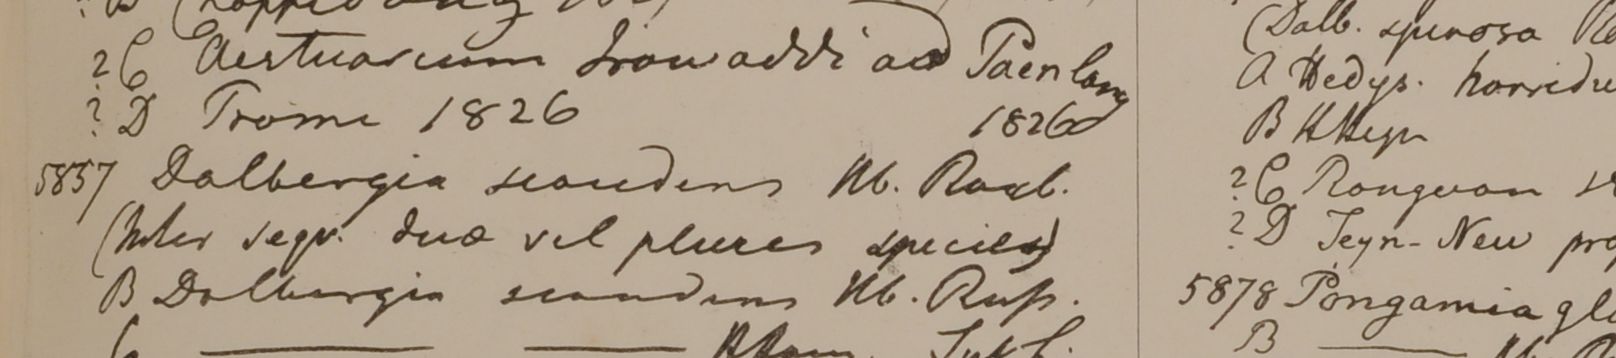 ?C Aestuarium Irawaddi ad Paenlang
?D Prome 1826 1826
5857 Dalbergia scandens Hb. Roxb.
(Inter seqv. duæ vel plures species)
B Dalbergia scandens Hb. Russ.
C
(Dalb. spinosa
A Hedys. horridu
B HHeyn
?C Rongoon
?D Teyn-New pro
5878 Pongamia gla
B